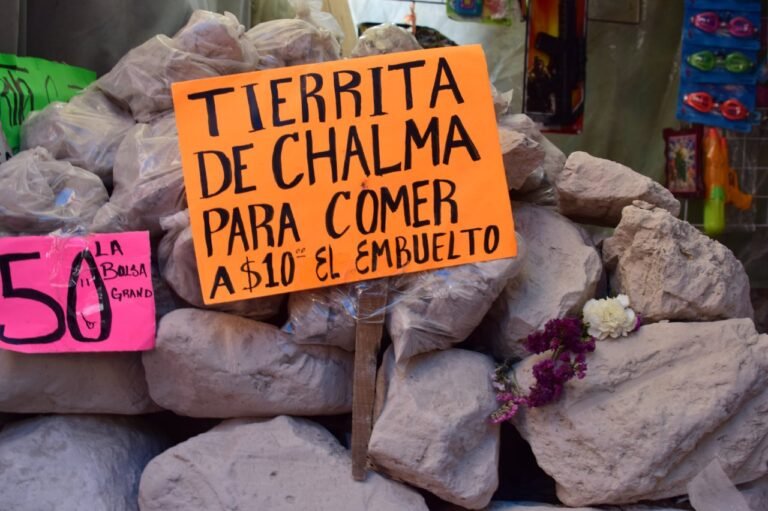 TIERRITA
DE CHALMA
PARA COMER
A $10 EL EMBUELTO
50
LA
BOLSA
GRAND